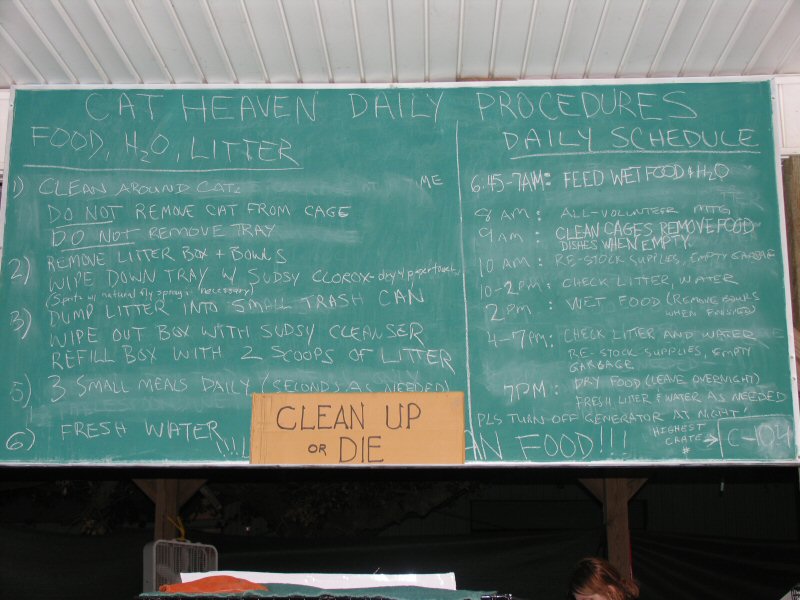 CAT HEAVEN DAILY PROCEDURES
FOOD, H2O, LITTER
1) CLEAN AROUND CAT.
ME
DO NOT REMOVE CAT FROM CAGE
DO NOT REMOVE TRAY
2) REMOVE LITTER BOX + BOWLS
WIPE DOWN TRAY W/ SUDSY CLOROX - dry w/ paper towel
(Spots w/ natural fly spray if necessary)
3) DUMP LITTER INTO SMALL TRASH CAN
WIPE OUT BOX WITH SUDSY CLEANSER
REFILL BOX WITH 2 SCOOPS OF LITTER
5) 3 SMALL MEALS DAILY (SECONDS AS NEEDED)
6) FRESH WATER
!!!!
DAILY SCHEDULE
6:45-7AM: FEED WET FOOD & H2O
8 AM: ALL-VOLUNTEER MTG
9 AM: CLEAN CAGES REMOVE FOOD
DISHES WHEN EMPTY.
10 AM: RE-STOCK SUPPLIES, EMPTY GARBAGE
10-2PM: CHECK LITTER, WATER
2PM: WET FOOD (REMOVE BOWLS
WHEN FINISHED)
4-7PM: CHECK LITTER AND WATER
RE-STOCK SUPPLIES, EMPTY
GARBAGE
7PM: DRY FOOD (LEAVE OVERNIGHT)
FRESH LITTER & WATER AS NEEDED
PLS TURN OFF GENERATOR AT NIGHT!
AN FOOD!!!
HIGHEST
CRATE → C-104
#
CLEAN UP
OR DIE